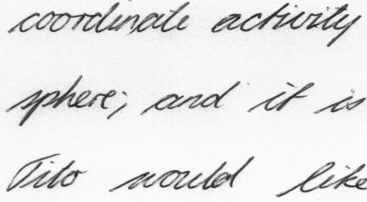 coordinate activity
sphere; and it is
Tito would like